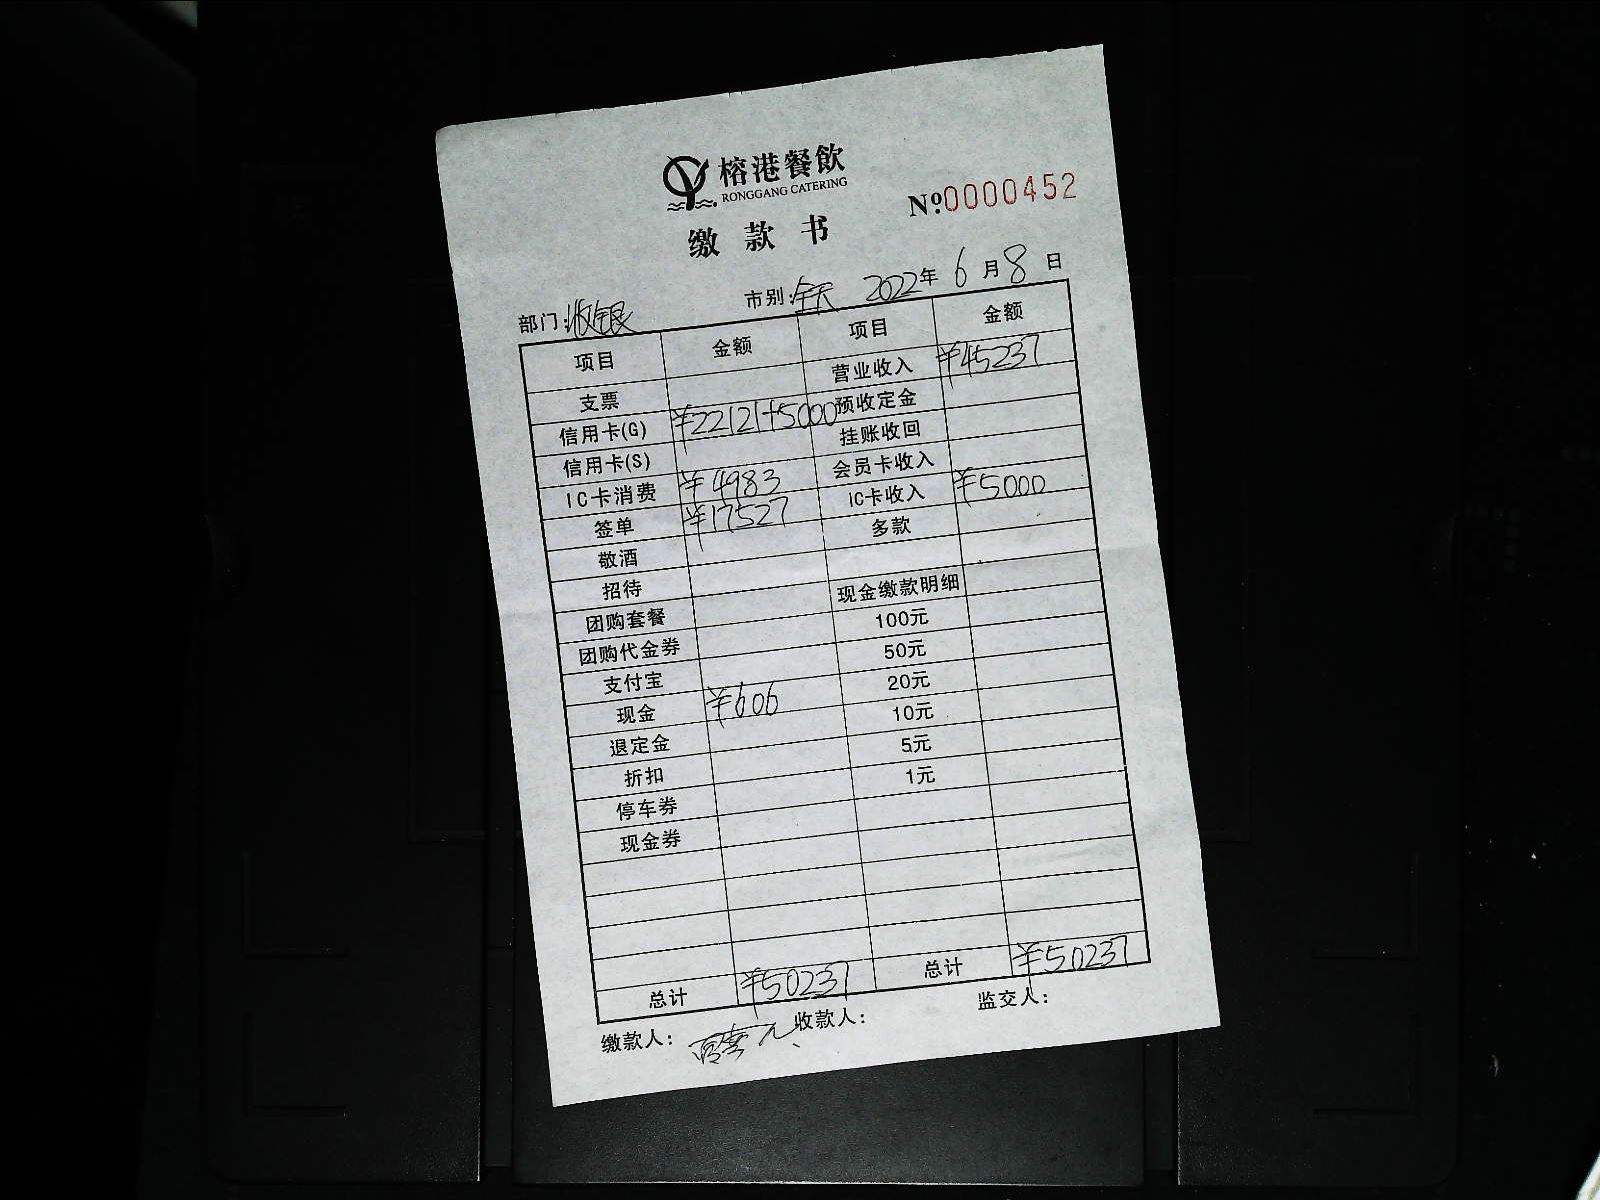 榕港餐飲
RONGGANG CATERING
№0000452
缴款书
部门:收银 市别:全天 2022年6月8日
项目 金额 项目 金额
支票 营业收入 ¥45237
信用卡(G) ¥22121+5000 预收定金
信用卡(S) 挂账收回
IC卡消费 ¥4983 会员卡收入
签单 ¥17527 IC卡收入 ¥5000
敬酒 多款
招待
团购套餐 现金缴款明细
团购代金券 100元
支付宝 50元
现金 ¥606 20元
退定金 10元
折扣 5元
停车券 1元
现金券
总计 ¥50237 总计 ¥50237
缴款人: 收款人: 监交人: